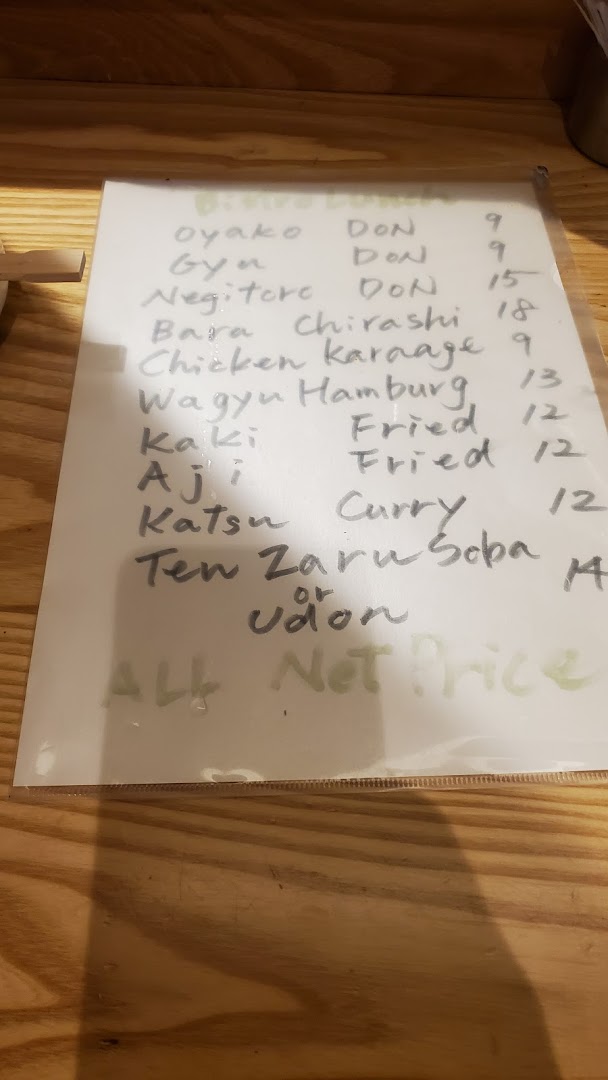 Bistro Lunch
Oyako DON 9
Gyu DON 9
Negitoro DON 15
Bara Chirashi 18
Chicken Karaage 9
Wagyu Hamburg 13
Kaki Fried 12
Aji Fried 12
Katsu Curry 12
Ten Zaru Soba 14
or
Udon
ALL Net Price